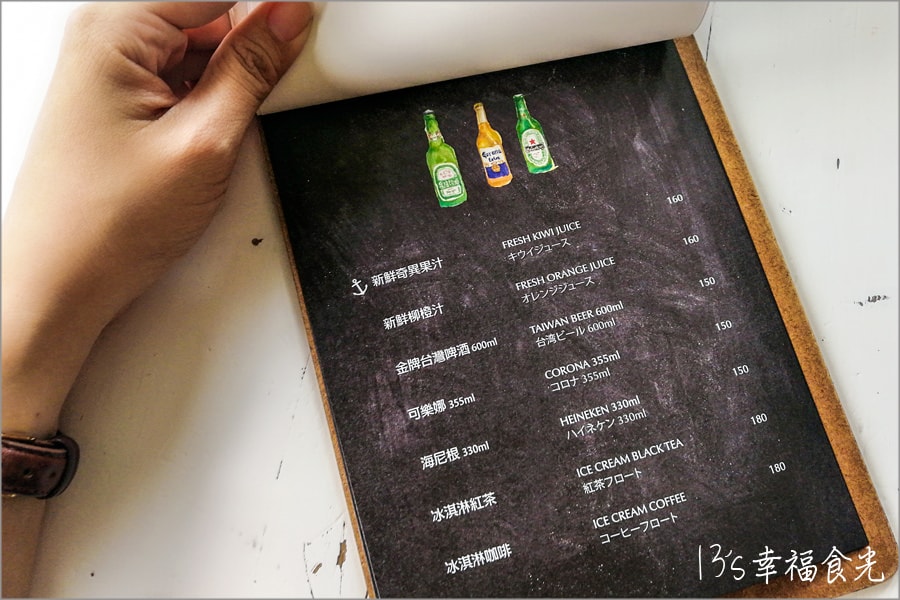 Corona
Extra
新鮮奇異果汁
FRESH KIWI JUICE
キウイジュース
160
新鮮柳橙汁
FRESH ORANGE JUICE
オレンジジュース
160
金牌台灣啤酒 600ml
TAIWAN BEER 600ml
台湾ビール 600ml
150
可樂娜 355ml
CORONA 355ml
コロナ 355ml
150
海尼根 330ml
HEINEKEN 330ml
ハイネケン 330ml
150
冰淇淋紅茶
ICE CREAM BLACK TEA
紅茶フロート
180
冰淇淋咖啡
ICE CREAM COFFEE
コーヒーフロート
180
13's幸福食光